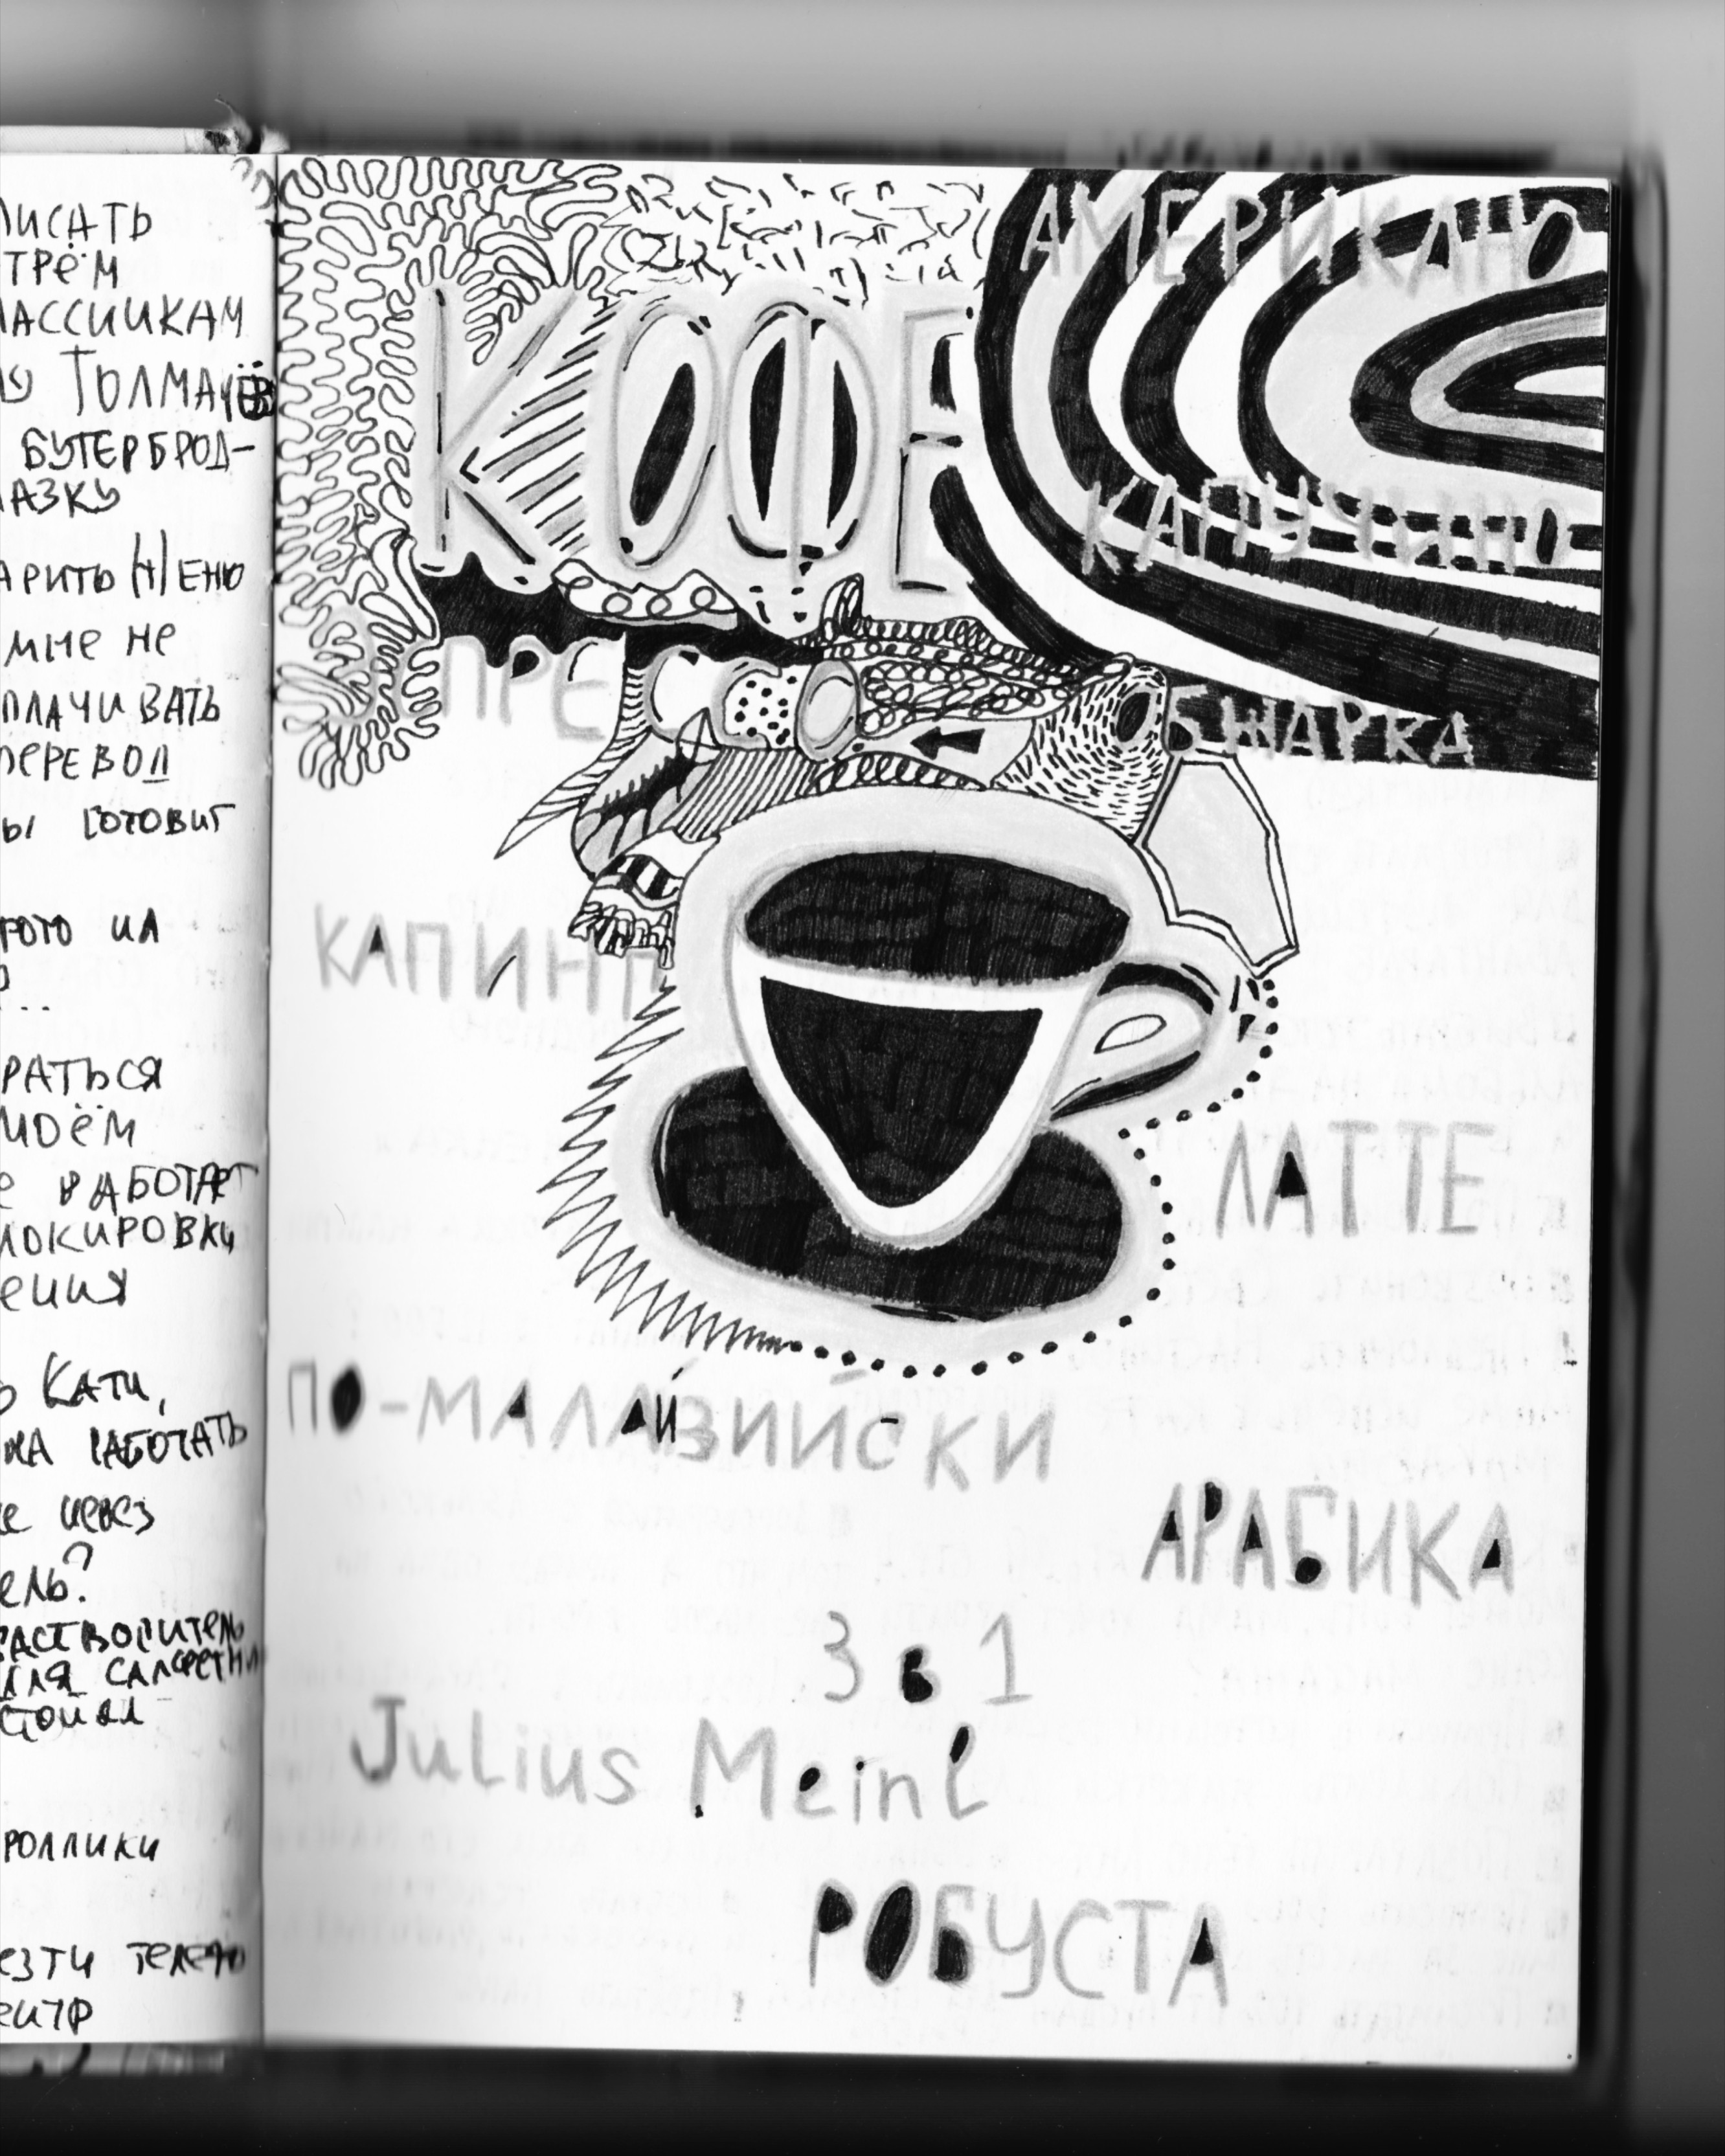 ПИСАТЬ
ТРЁМ
ЛАССИИКАМ
ТОЛМАЧЁВ
БУТЕРБРОД-
АЗКУ
АРИТЬ МЕНЮ
МНЕ НЕ
ПЛАЧИВАТЬ
ПЕРЕВОД
Ы ГОТОВИТ
ФОТО ИЛ
?..
РАТЬСЯ
МОЁМ
Е РАБОТАЕТ
ЛОКИРОВКИ
ЕНИЯ
КАТИ,
РАБОТАТЬ
Е ЧЕРЕЗ
ЕЛЬ?
РАСТВОРИТЕЛЬ
ДЛЯ САЛФЕТНИ
СТОИЛ
РОЛЛИКИ
ЕЗТИ ТЕЛЕФО
ЕНТР
АМЕРИКАНО
КОФЕ
КАПУЧИНО
ПРЕ
ОБЖАРКА
КАПИНГ
ЛАТТЕ
ПО-МАЛАЙЗИЙСКИ
АРАБИКА
3 в 1
Julius Meinl
РОБУСТА